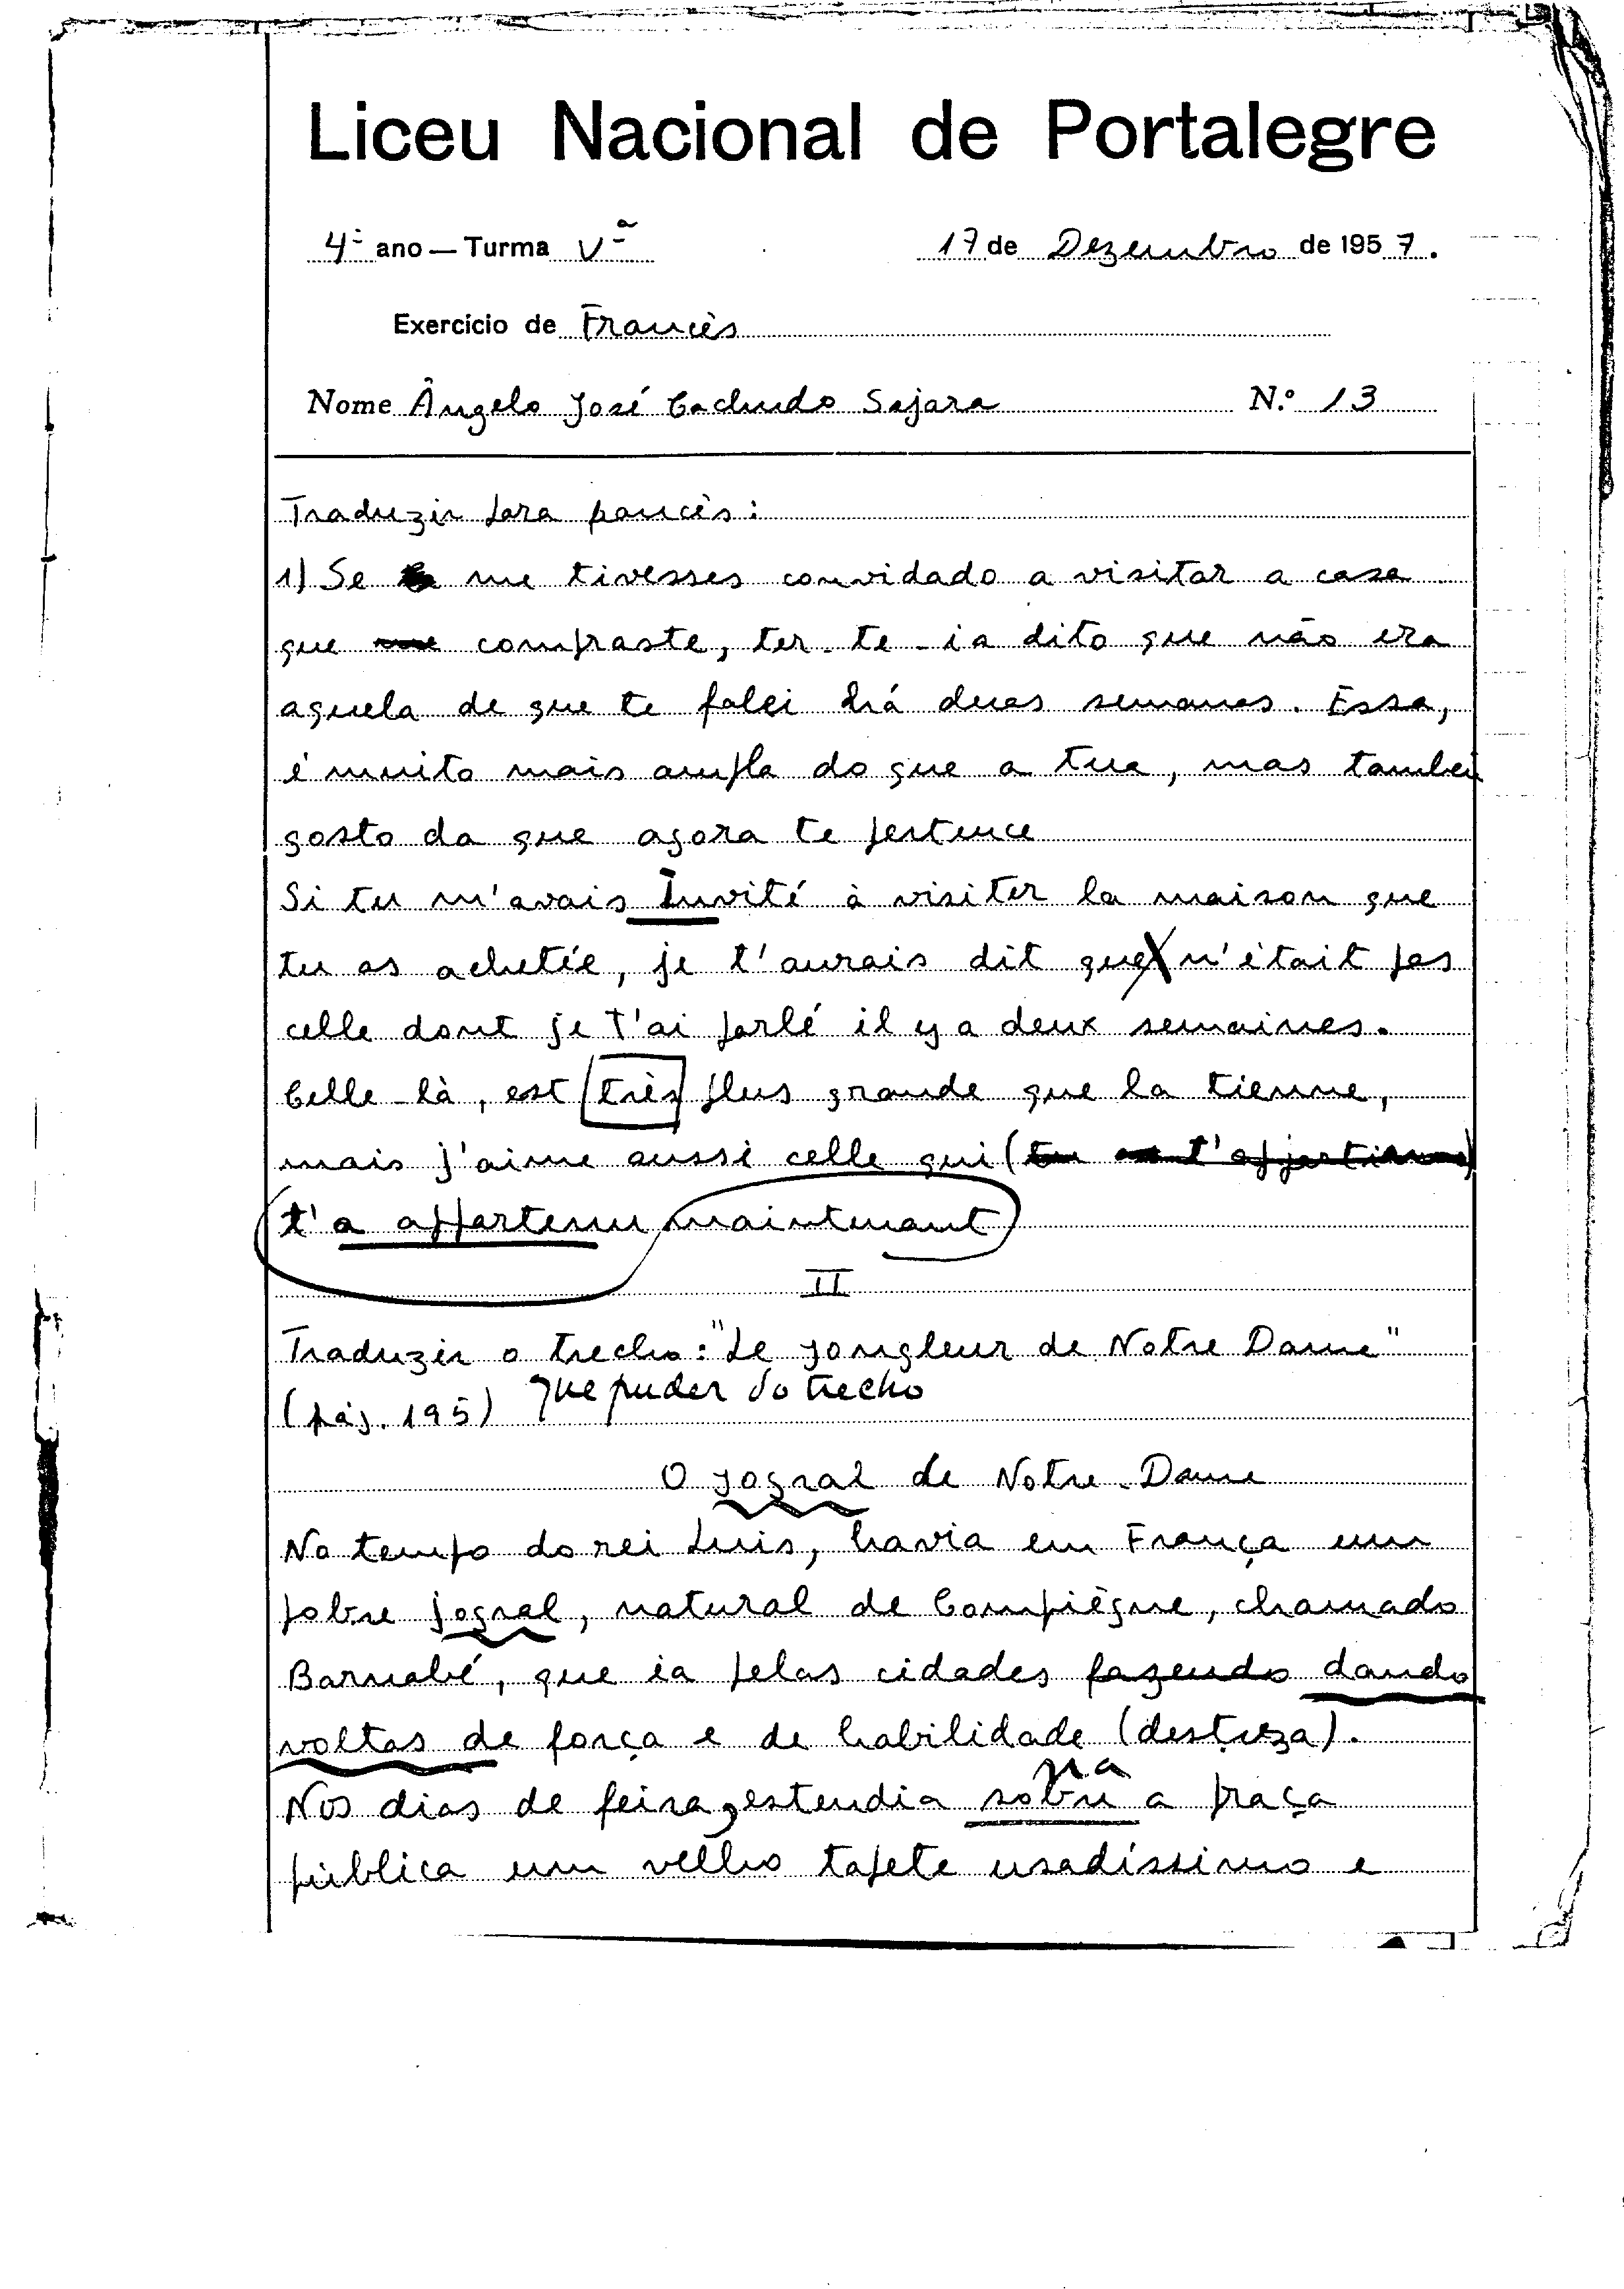 Liceu Nacional de Portalegre
4º ano — Turma Vª 17 de Dezembro de 1957.
Exercício de Francês
Nome Ângelo José Cachudo Sajara N.º 13
Traduzir para francês:
1) Se me tivesses convidado a visitar a casa
que compraste, ter-te-ia dito que não era
aquela de que te falei há duas semanas. Essa,
é muito mais ampla do que a tua, mas tambem
gosto da que agora te pertence
Si tu m'avais Invité à visiter la maison que
tu as achetée, je t'aurais dit que n'était pas
celle dont je t'ai parlé il y a deux semaines.
Celle-là, est très plus grande que la tienne,
mais j'aime aussi celle qui (tu t'appartienne)
t'a appartenu maintenant
II
Traduzir o trecho: "Le jongleur de Notre Dame"
(pág. 195) que puder do trecho
O jogral de Notre-Dame
No tempo do rei Luis, havia em França um
pobre jogral, natural de Compiègne, chamado
Barnabé, que ia pelas cidades fazendo dando
voltas de força e de habilidade (destreza).
na
Nos dias de feira, estendia sobre a praça
pública um velho tapete usadíssimo e